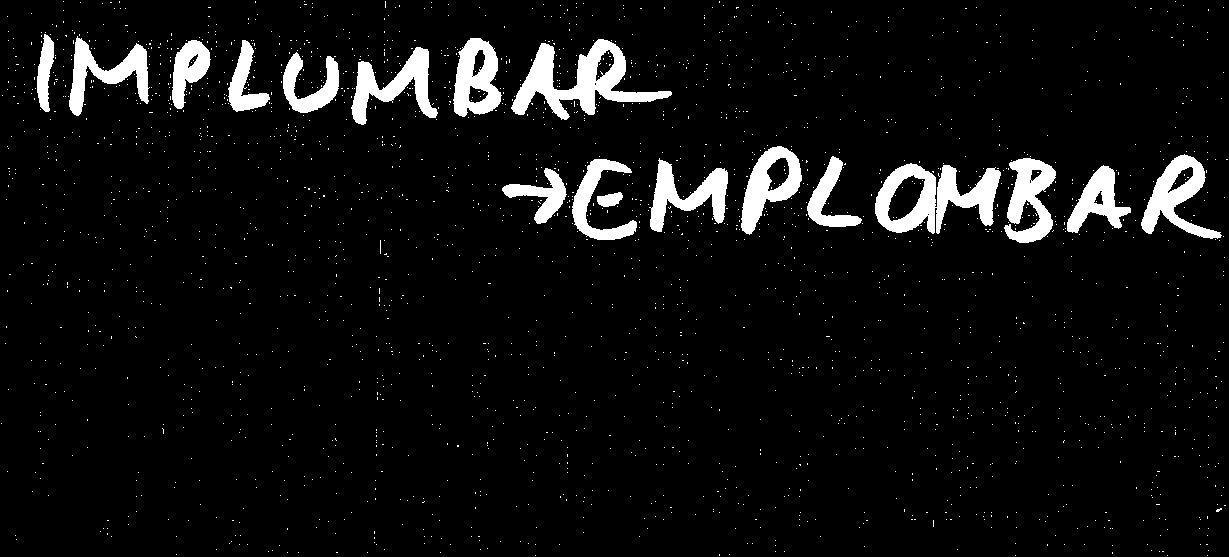 IMPLUMBAR
→EMPLOMBAR